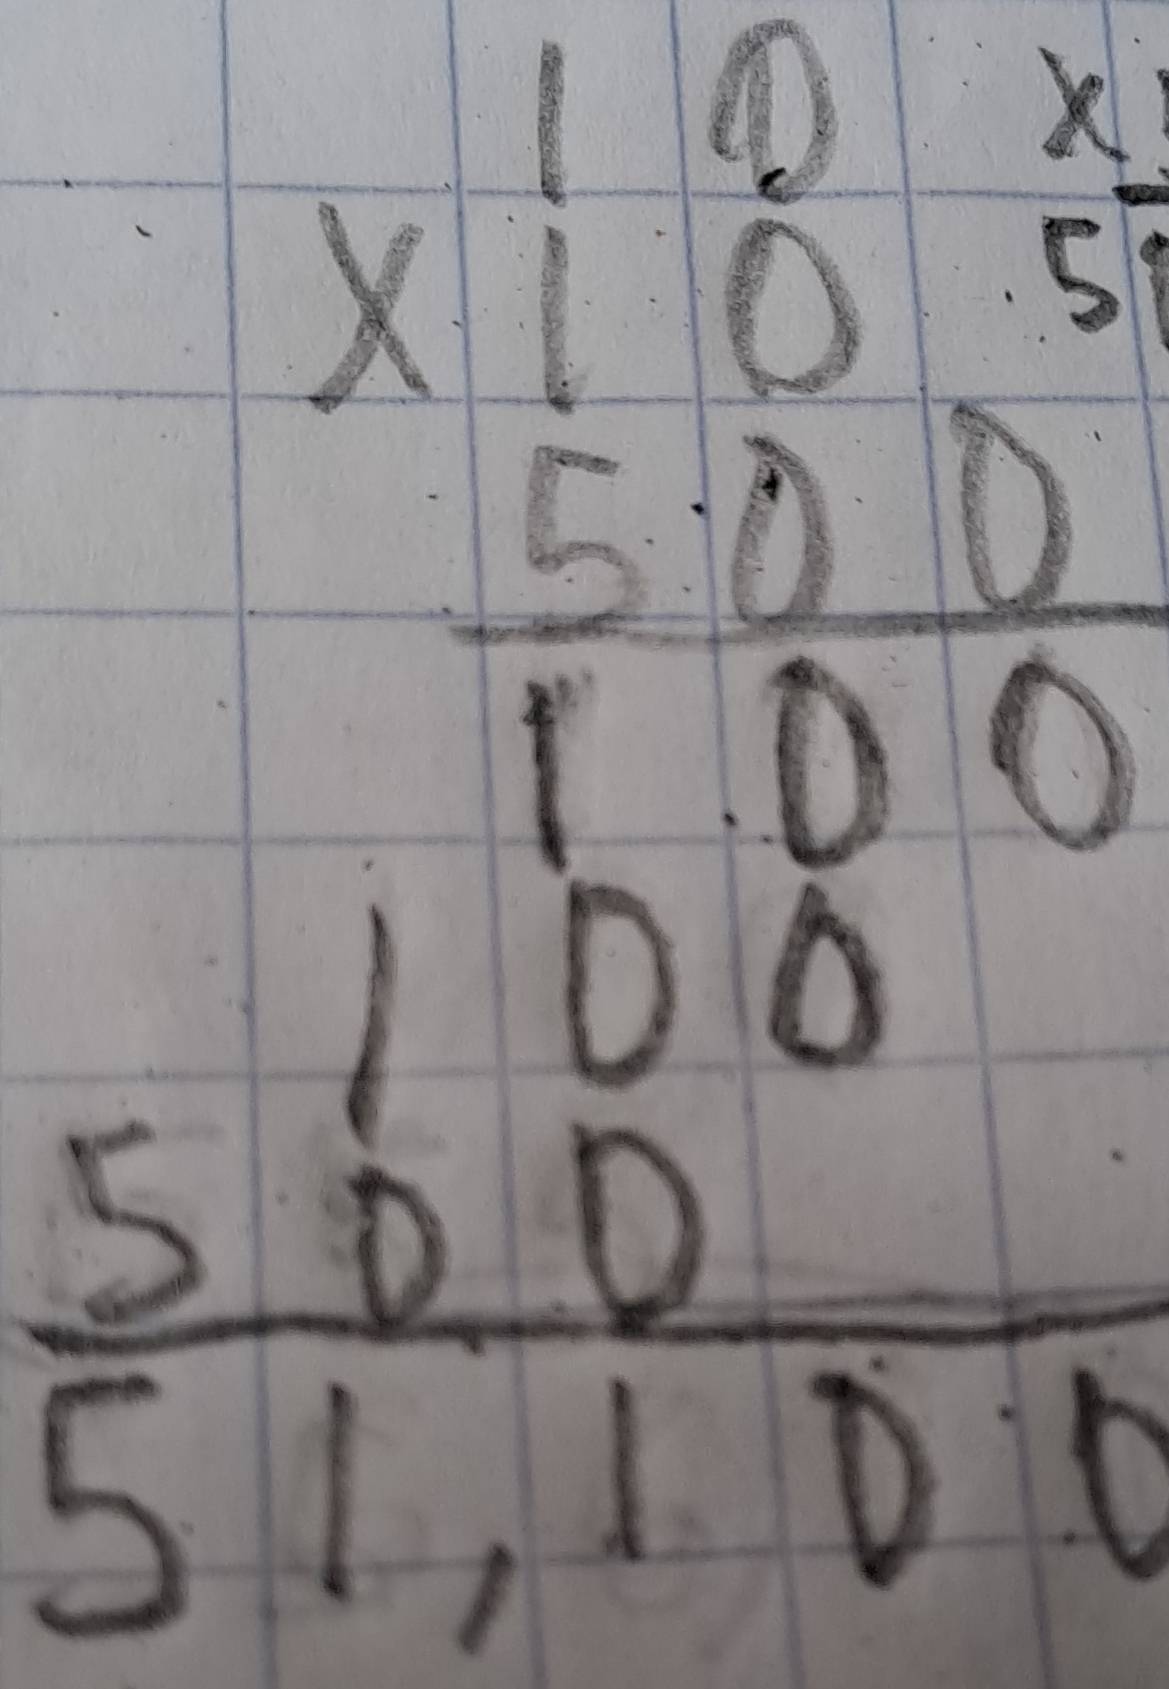 10
X 10
500
100
100
500
51,100
x
5